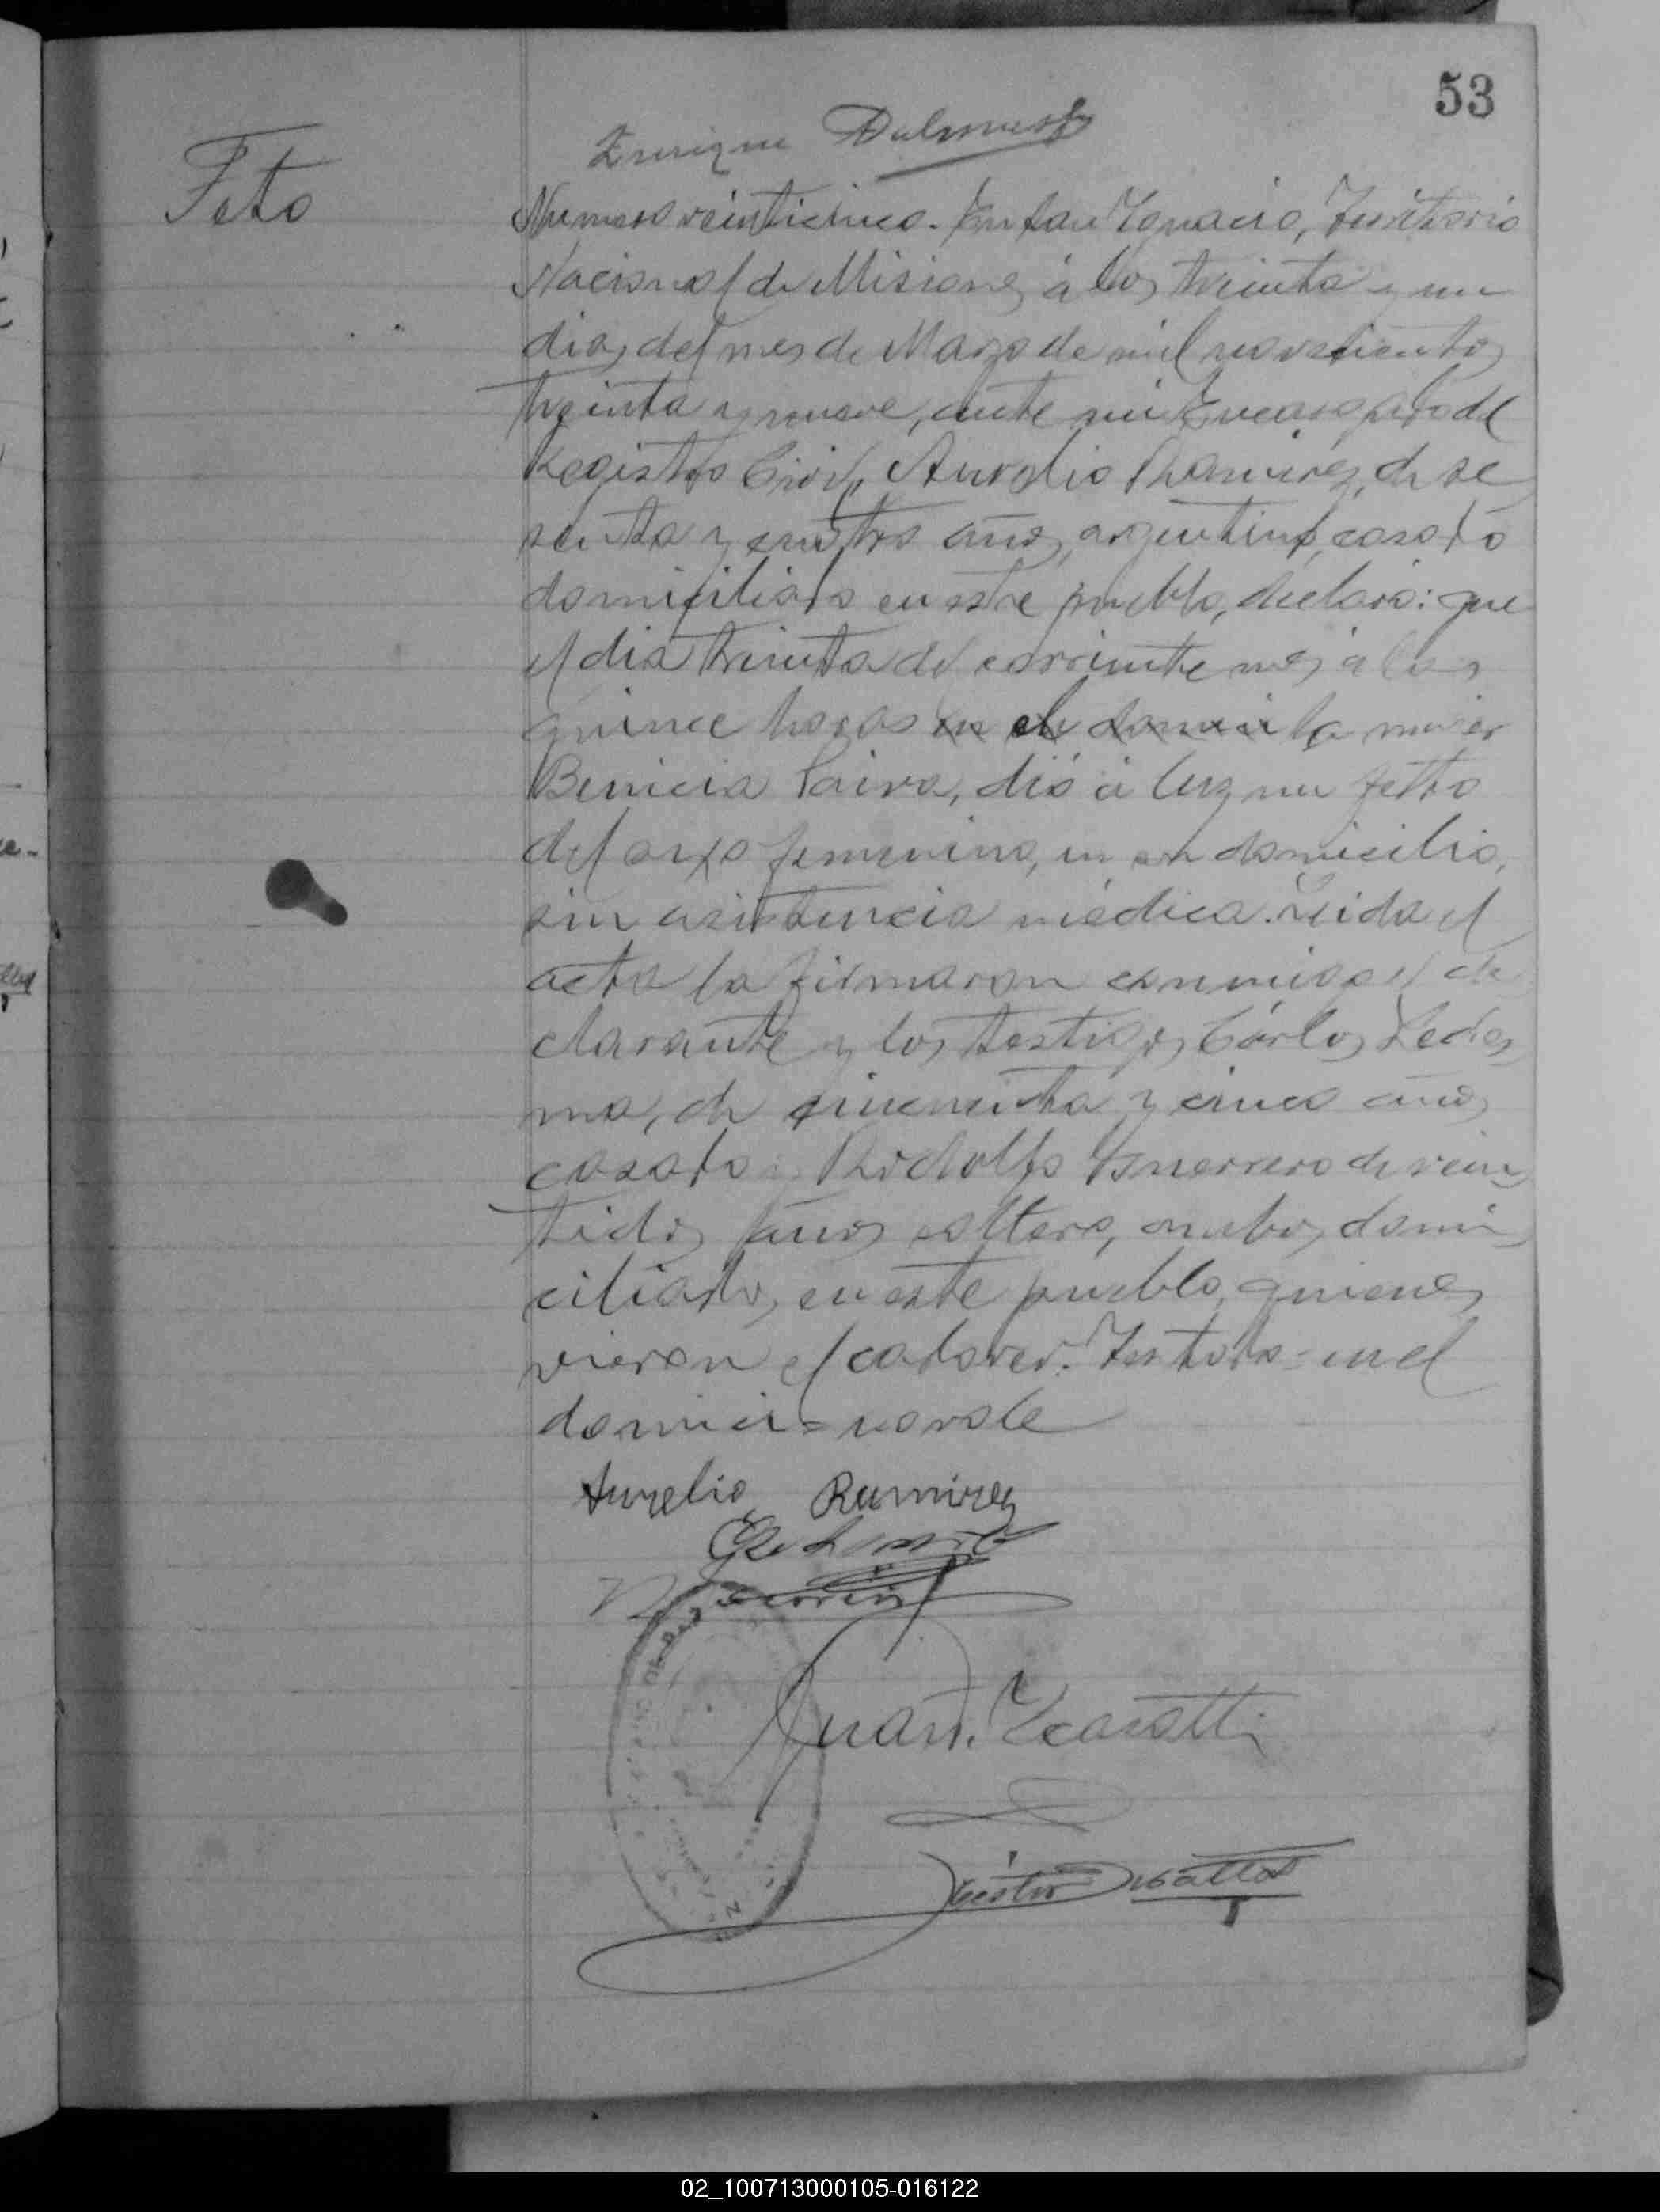 53
Enrique Dalmas
Feto
Numero veinticinco. En San Ygnacio, Territorio
Nacional de Misiones á los treinta y un
dias del mes de Marzo de mil novecientos
treinta y nueve, ante mi Encargado del
Registro Civil, Aurelio Ramirez, de se
senta y cuatro años, argentino, casado
domiciliado en este pueblo, declaró: que
el dia treinta del corriente mes á las
quince horas en el domici la mujer
Benicia Paiva, dió á luz un fetto
del sexo femenino, en su domicilio,
sin asistencia médica. Leida el
acta la firmaron conmigo el de
clarante y los testigos Cárlos Ledes
ma, de cincuenta y cinco años
casado y Rodolfo Guerrero de vein
tidos años soltero, ambos domi
ciliados en este pueblo, quienes
vieron el cadaver. Testado = en el
domici = no vale
Aurelio Ramirez
Juan